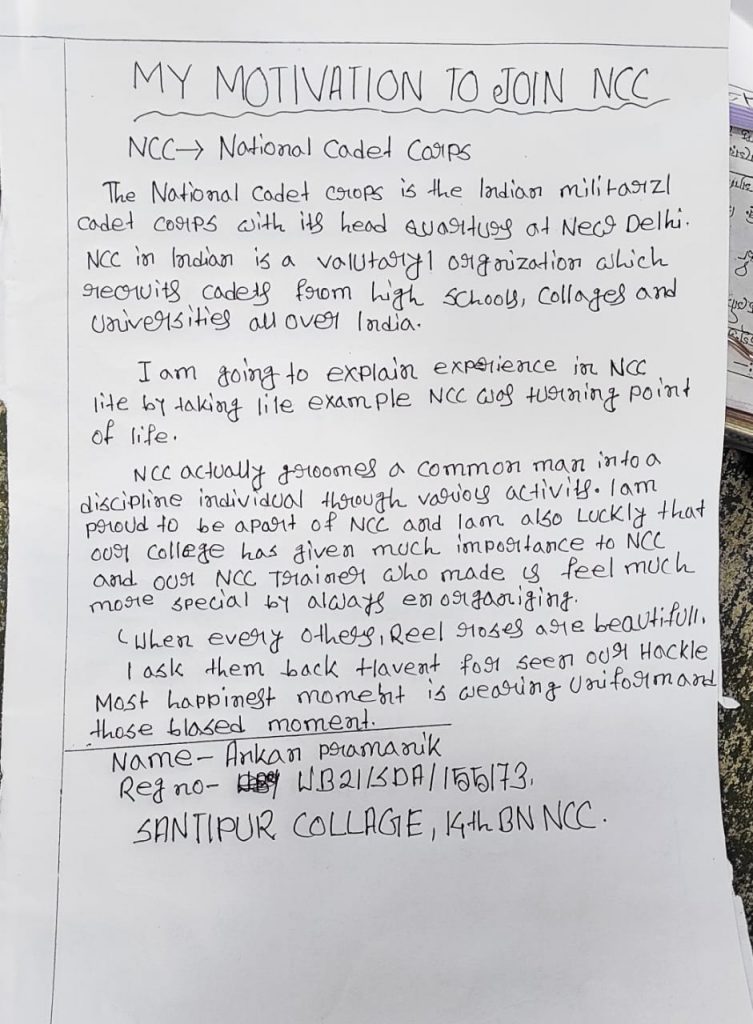 MY MOTIVATION TO JOIN NCC
NCC → National Cadet Corps
The National Cadet crops is the Indian militarzl
cadet corps with its head quarturs at New Delhi.
NCC in Indian is a valutaryl orgnization which
recruits cadets from high schools, Collages and
Universities all over India.
I am going to explain experience in NCC
life by taking life example NCC was turning point
of life.
NCC actually groomes a common man into a
discipline individual through various activits. I am
proud to be apart of NCC and I am also Luckly that
our college has given much importance to NCC
and our NCC Trainer who made us feel much
more special by always enorganiging.
(When every others, Reel roses are beautifull.
I ask them back Havent for seen our Hackle
Most happinest moment is wearing Uniform and
those blased moment.
Name - Ankan pramanik
Reg no - WB21/SDA/155173.
SANTIPUR COLLAGE, 14th BN NCC.